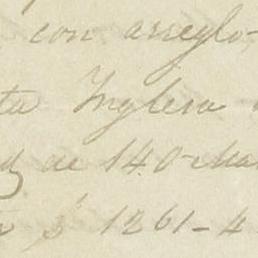 con arreglo-
ta Inglesa
de 140
1261-4